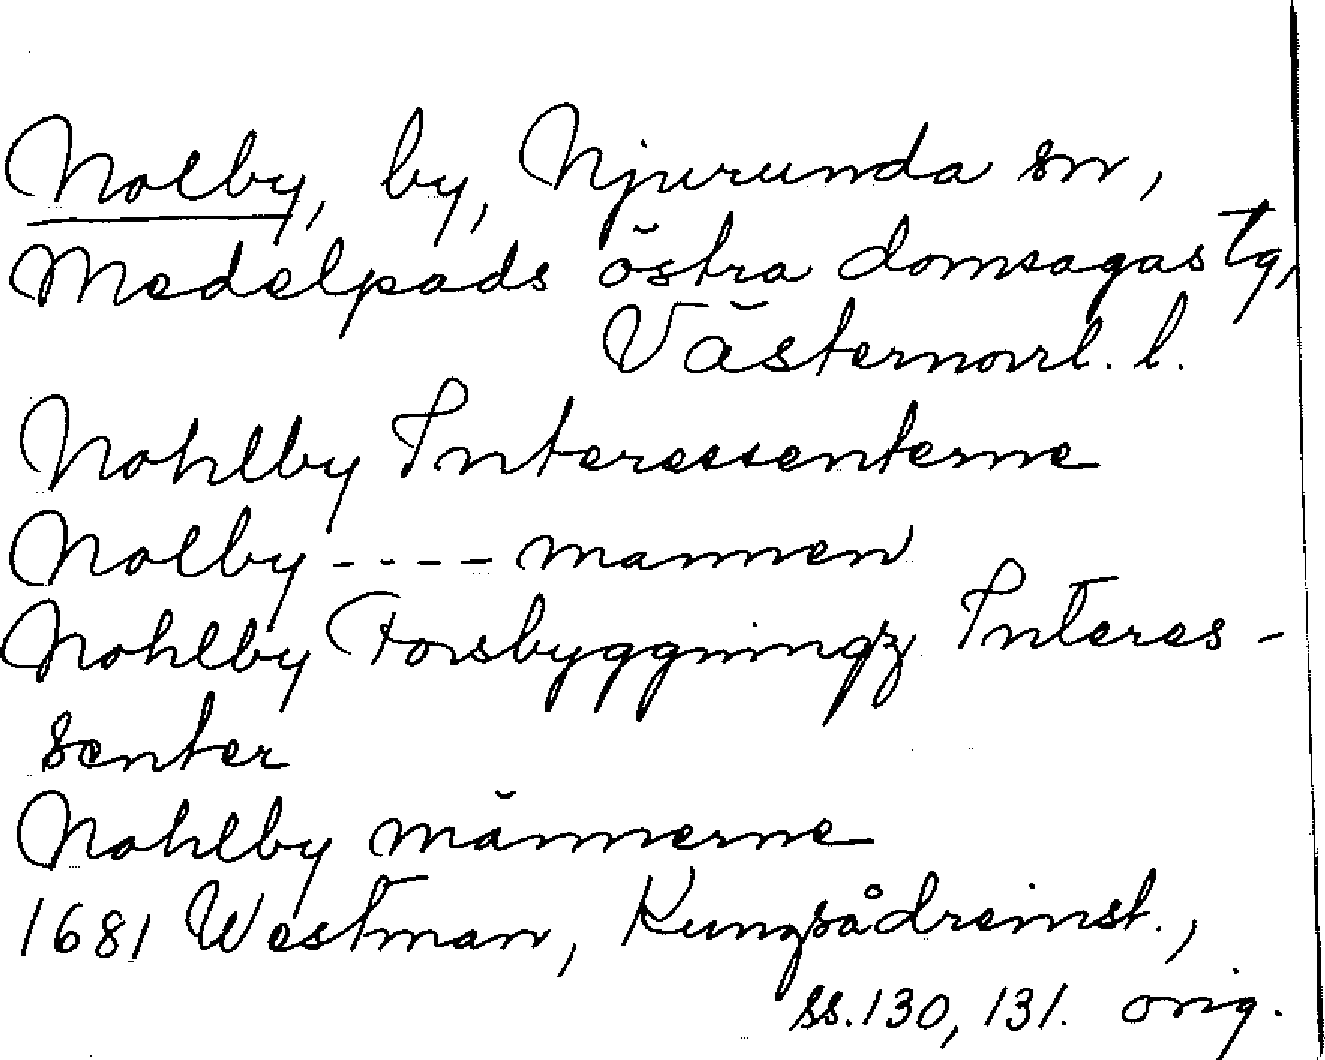 Nolby, by, Njurunda sn,
Medelpads östra domsagas tg,
Västernorrl. l.
Nohlby Interessenterne
Nolby - - - - mannen
Nohlby Forsbyggningz Interes-
senter
Nohlby männerne
1681 Westman, Kungsådreinst.,
ss. 130, 131. orig.